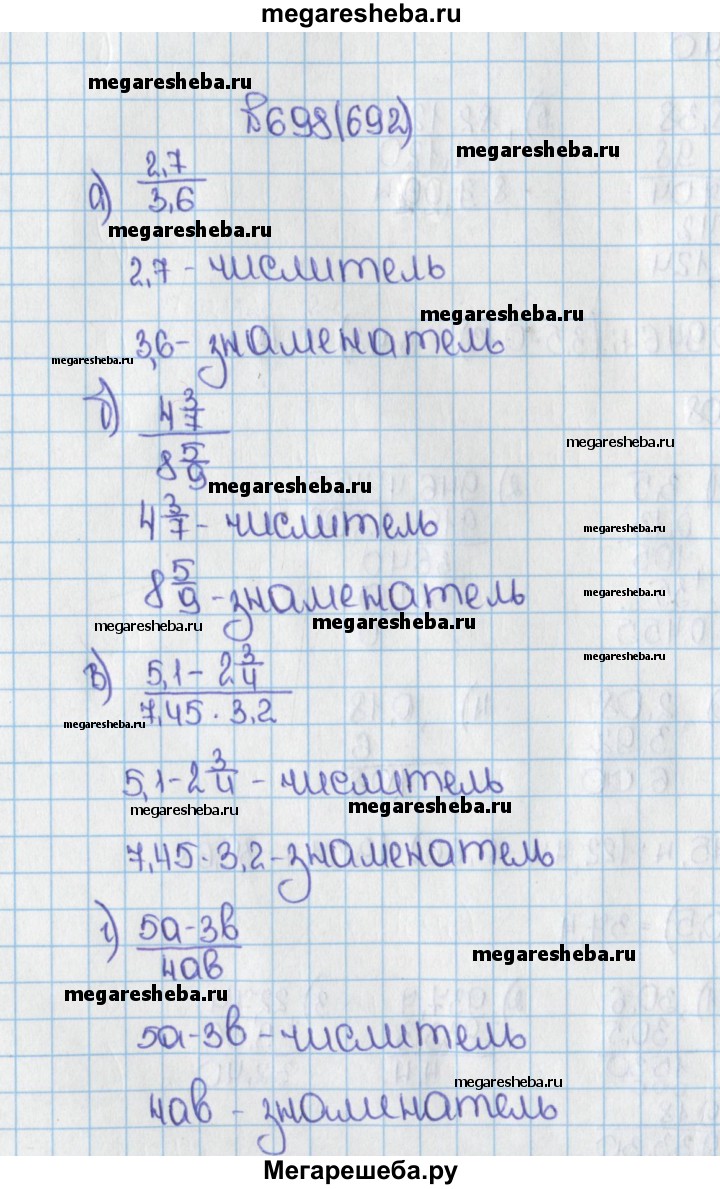 megaresheba.ru
megaresheba.ru
№698(692)
megaresheba.ru
а) 2,7/3,6
megaresheba.ru
2,7 - числитель
megaresheba.ru
3,6 - знаменатель
megaresheba.ru
б) 4 3/7 / 8 5/9
megaresheba.ru
megaresheba.ru
4 3/7 - числитель
megaresheba.ru
8 5/9 - знаменатель
megaresheba.ru
megaresheba.ru
megaresheba.ru
в) 5,1 - 2 3/4 / 7,45 · 3,2
megaresheba.ru
megaresheba.ru
5,1 - 2 3/4 - числитель
megaresheba.ru
megaresheba.ru
7,45 · 3,2 - знаменатель
г) 5а - 3в / 4ав
megaresheba.ru
megaresheba.ru
5а - 3в - числитель
megaresheba.ru
4ав - знаменатель
Мегарешеба.ру